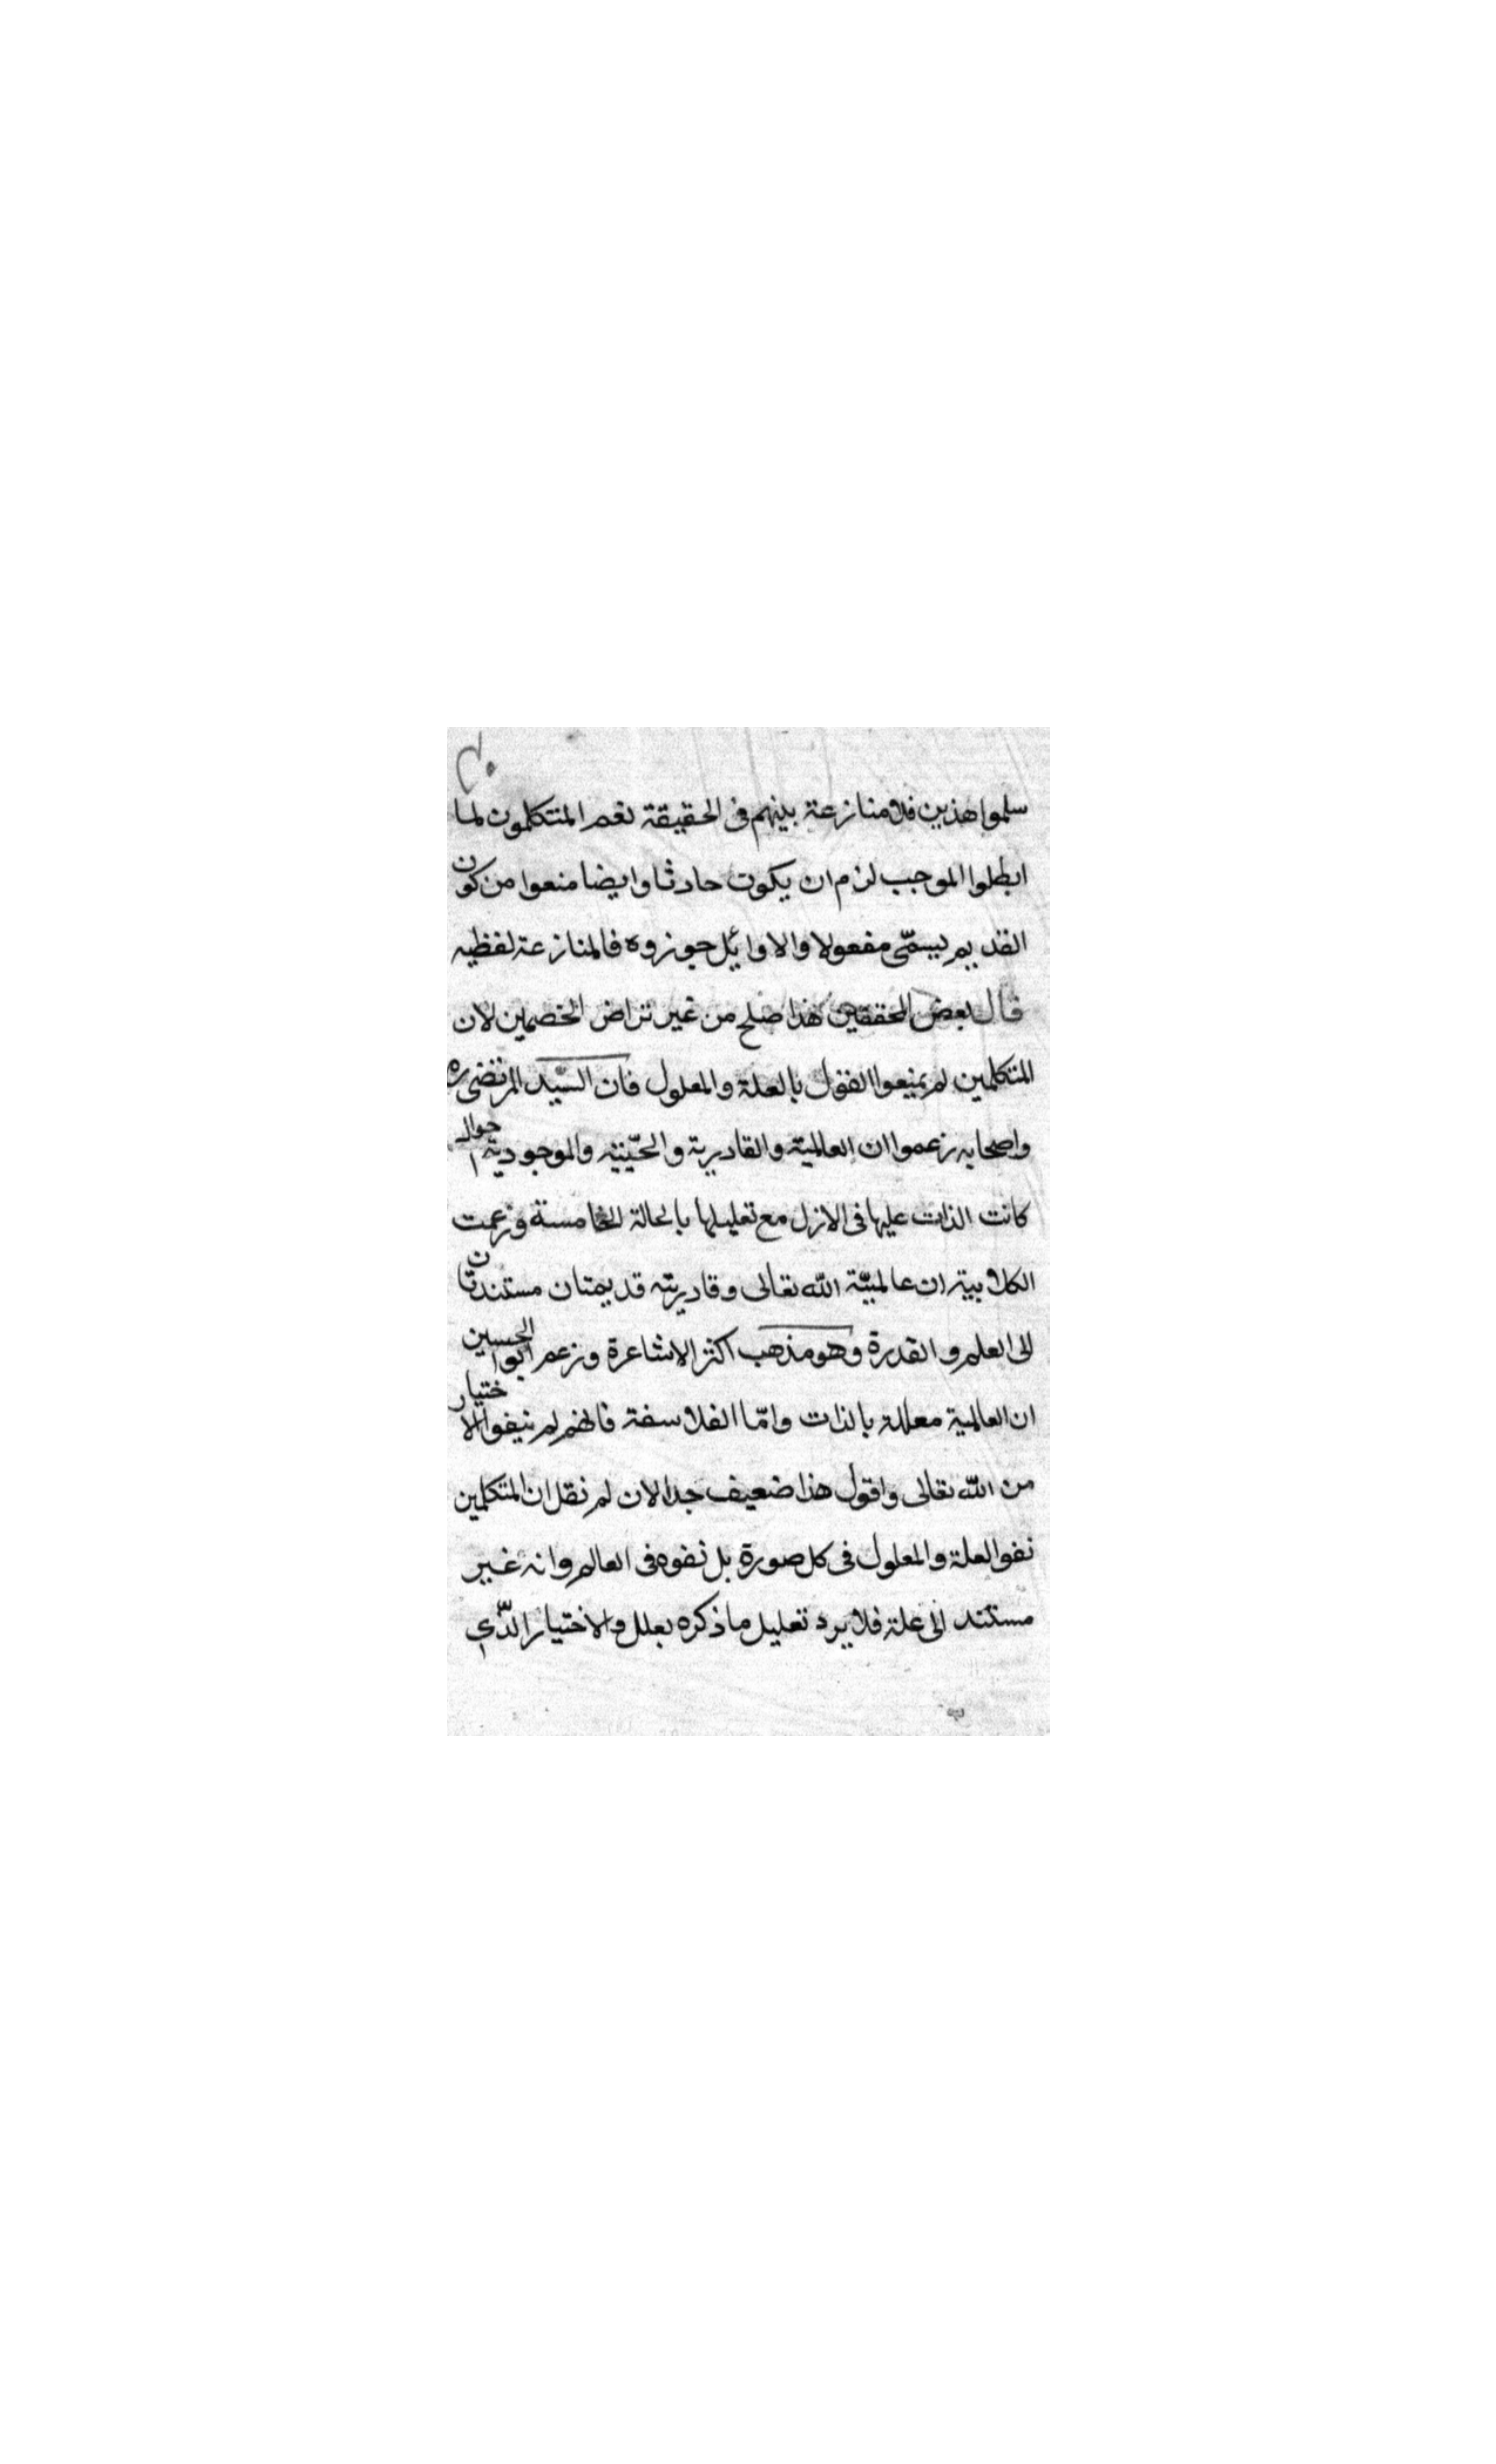 سلموا هذين فلا منازعة بينهم فى الحقيقة نعم المتكلمون لما
ابطلوا الموجب لزم ان يكون حادثا وايضا منعوا من كون
القديم يسمّى مفعولا والاوائل جوزوه فالمنازعة لفظيه
قال بعض المحققين هذا صلح من غير تراض الخصمين لان
المتكلمين لم يمنعوا القول بالعلة والمعلول فان السيّد المرتضى ره
واصحابه زعموا ان العالمية والقادرية والحيّيته والموجودية احوال
كانت الذات عليها فى الازل مع تعليلها بالحالة الخامسة وزعمت
الكلابية ان عالميّة اللّه تعالى وقادريته قديمتان مستندتان
الى العلم والقدرة وهو مذهب اكثر الاشاعرة وزعم ابوا الحسين
ان العالمية معللة بالذات وامّا الفلاسفة فانهم لم ينفوا الاختيار
من اللّه تعالى واقول هذا ضعيف جدا لان لم نقل ان المتكلمين
نفوا لعلة والمعلول فى كل صورة بل نفوه فى العالم وانه غير
مستند الى علة فلا يرد تعليل ما ذكره بعلل والاختيار الّذي